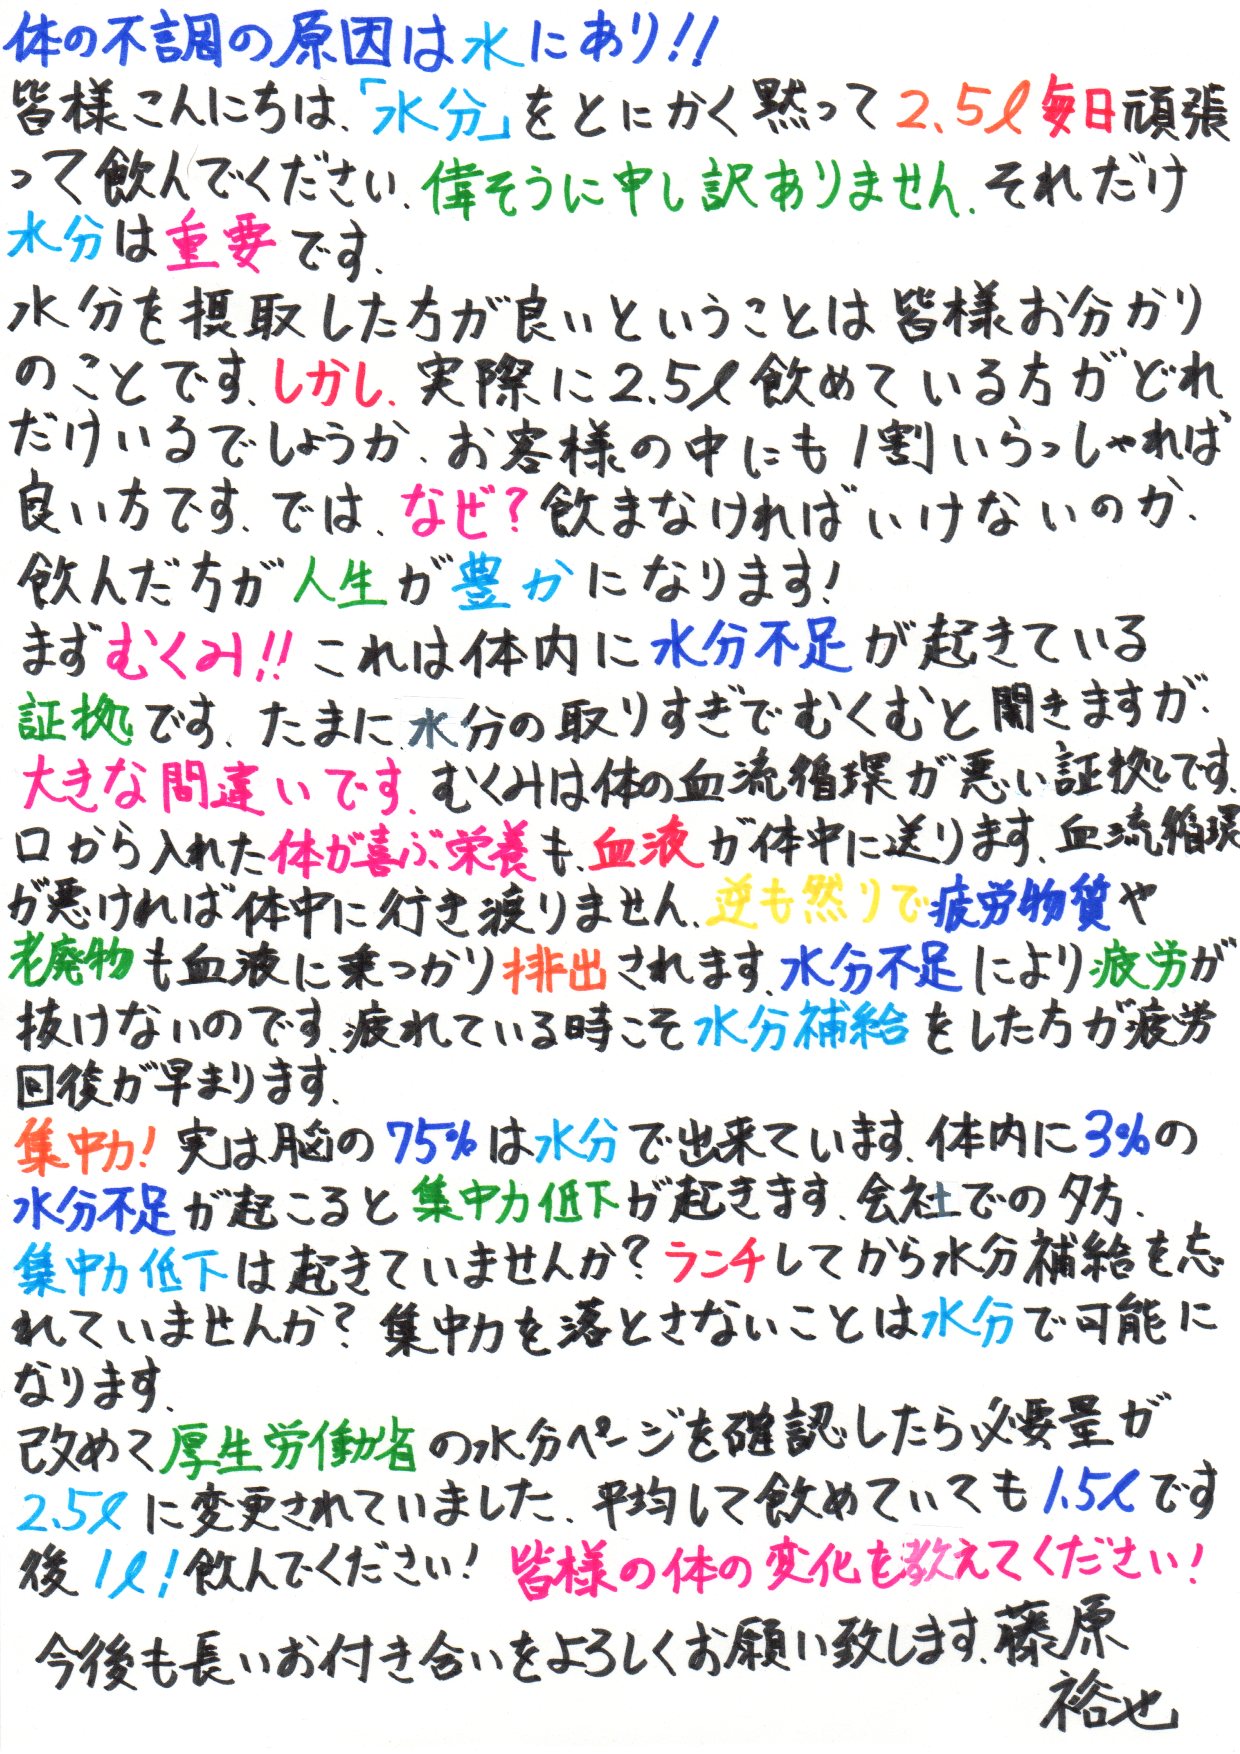 体の不調の原因は水にあり!!
皆様こんにちは、「水分」をとにかく黙って2.5l毎日頑張
って飲んでください、偉そうに申し訳ありません、それだけ
水分は重要です、
水分を摂取した方が良いということは皆様お分かり
のことです、しかし、実際に2.5l飲めている方がどれ
だけいるでしょうか、お客様の中にも1割いらっしゃれば
良い方です、では、なぜ?飲まなければいけないのか、
飲んだ方が人生が豊かになります!
まずむくみ!!これは体内に水分不足が起きている
証拠です、たまに、水分の取りすぎでむくむと聞きますが、
大きな間違いです、むくみは体の血流循環が悪い証拠です、
口から入れた体が喜ぶ栄養も、血液が体中に送ります、血流循環
が悪ければ体中に行き渡りません、逆も然りで疲労物質や
老廃物も血液に乗っかり排出されます、水分不足により疲労が
抜けないのです、疲れている時こそ水分補給をした方が疲労
回復が早まります、
集中力!実は脳の75%は水分で出来ています、体内に3%の
水分不足が起こると集中力低下が起きます、会社での夕方、
集中力低下は起きていませんか?ランチしてから水分補給を忘
れていませんか?集中力を落とさないことは水分で可能に
なります、
改めて厚生労働省の水分ページを確認したら必要量が
2.5lに変更されていました、平均して飲めていても1.5lです
後1l!飲んでください!皆様の体の変化を教えてください!
今後も長いお付き合いをよろしくお願い致します、藤原
裕也